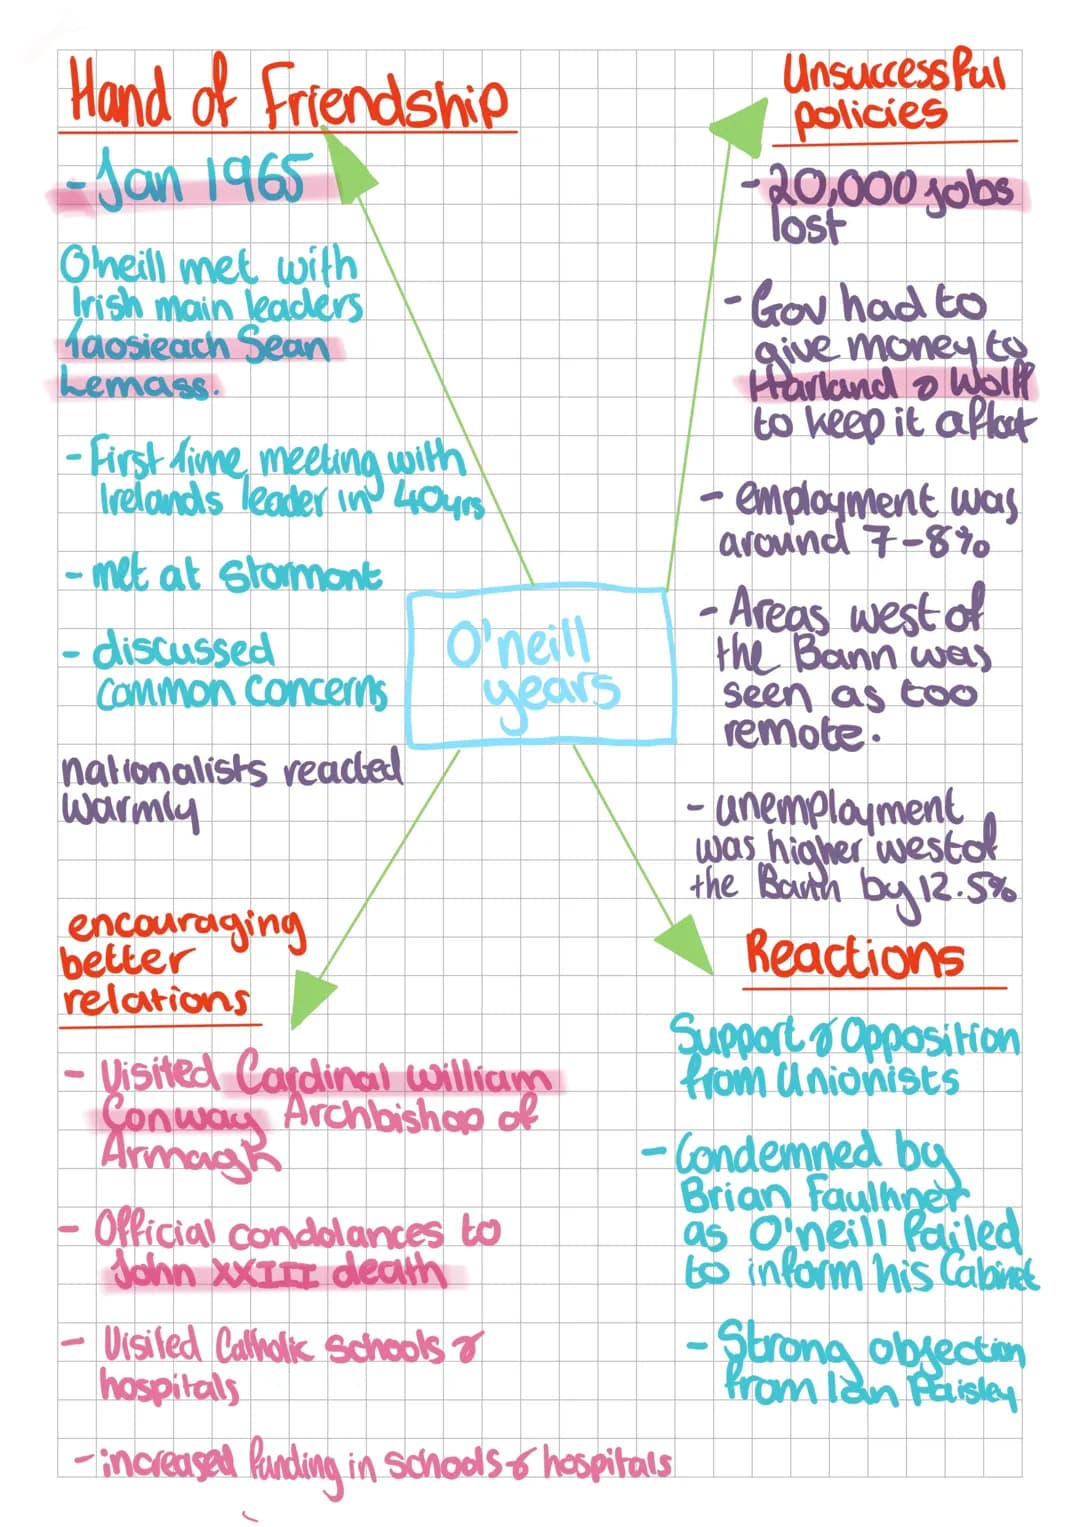 Hand of Friendship
- Jan 1965
O'neill met with
Irish main leaders
Taosieach Sean
Lemass.
- First time meeting with
Irelands leader in 40yrs
- met at Stormont
- discussed
common concerns
nationalists reacted
warmly
Unsuccessful
policies
- 20,000 jobs
lost
- Gov had to
give money to
Harland & Wolff
to keep it afloat
- employment was
around 7-8%
- Areas west of
the Bann was
seen as too
remote.
- unemployment
was higher west of
the Bann by 12.5%
O'neill
years
encouraging
better
relations
- Visited Cardinal William
Conway Archbishop of
Armagh
- Official condolances to
John XXIII death
- Visited Catholic schools &
hospitals
- increased funding in schools & hospitals
Reactions
Support & Opposition
from Unionists
- Condemned by
Brian Faulkner
as O'neill failed
to inform his Cabinet
- Strong objection
from Ian Paisley